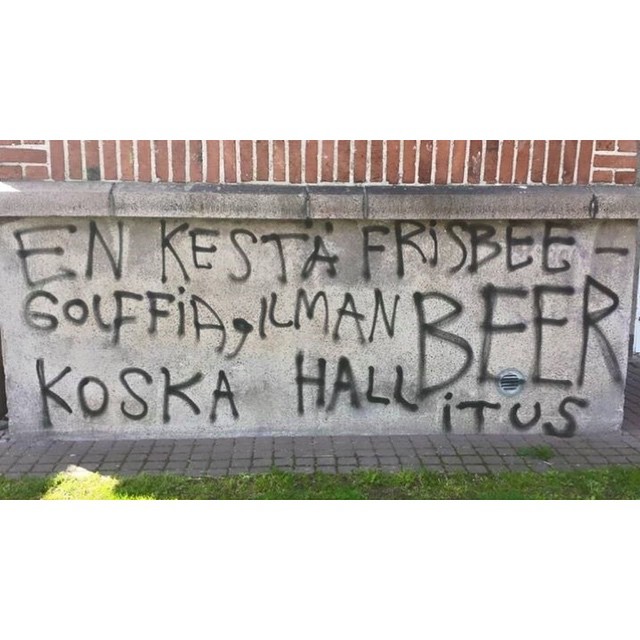 EN KESTÄ FRiSBEE-
GOLFFiA, ILMAN BEER
KOSKA HALLiTUS